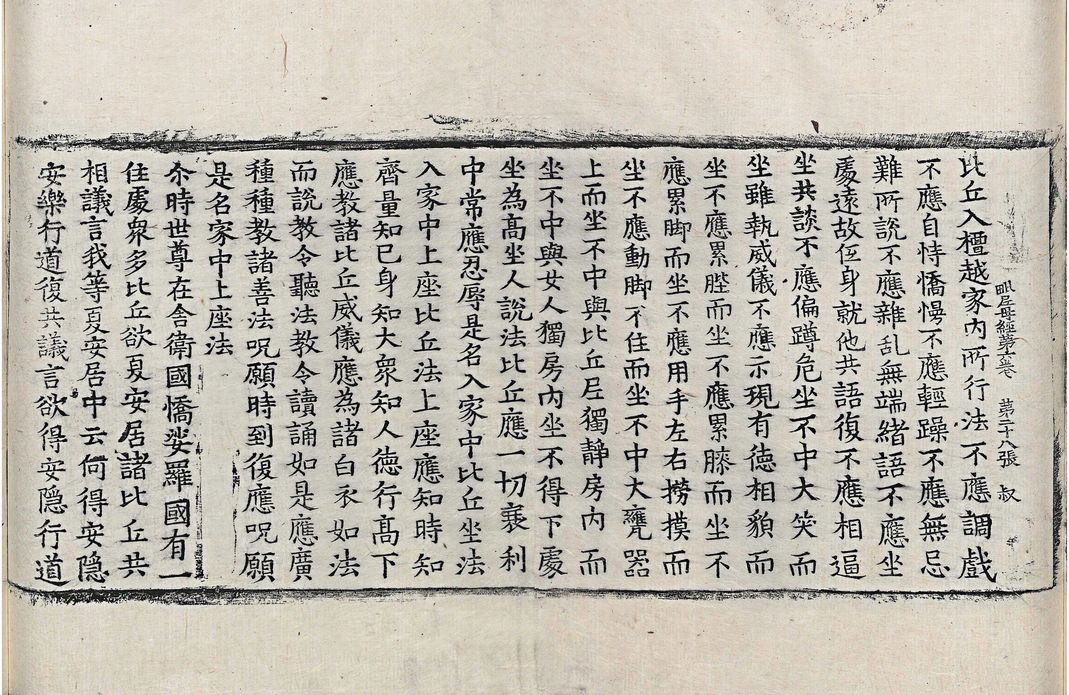 毗尼母經第六卷 第二十八張 叔
比丘入檀越家內所行法不應調戲
不應自恃憍慢不應輕躁不應無忌
難所說不應雜乱無端緒語不應坐
處遠故伍身就他共語復不應相逼
坐共談不應偏蹲危坐不中大笑而
坐雖執威儀不應示現有德相貌而
坐不應累䏶而坐不應累膝而坐不
應累脚而坐不應用手左右撈摸而
坐不應動脚不住而坐不中大甕器
上而坐不中與比丘尼獨靜房內而
坐不中與女人獨房內坐不得下處
坐為髙坐人說法比丘應一切裹利
中常應忍辱是名入家中比丘坐法
入家中上座比丘法上座應知時知
齊量知己身知大衆知人德行髙下
應教諸比丘威儀應為諸白衣如法
而說教令聽法教令讀誦如是應廣
種種教諸善法呪願時到復應呪願
是名家中上座法
尒時世尊在舍衛國憍娑羅國有一
住處衆多比丘欲夏安居諸比丘共
相議言我等夏安居中云何得安隱
安樂行道復共議言欲得安隱行道